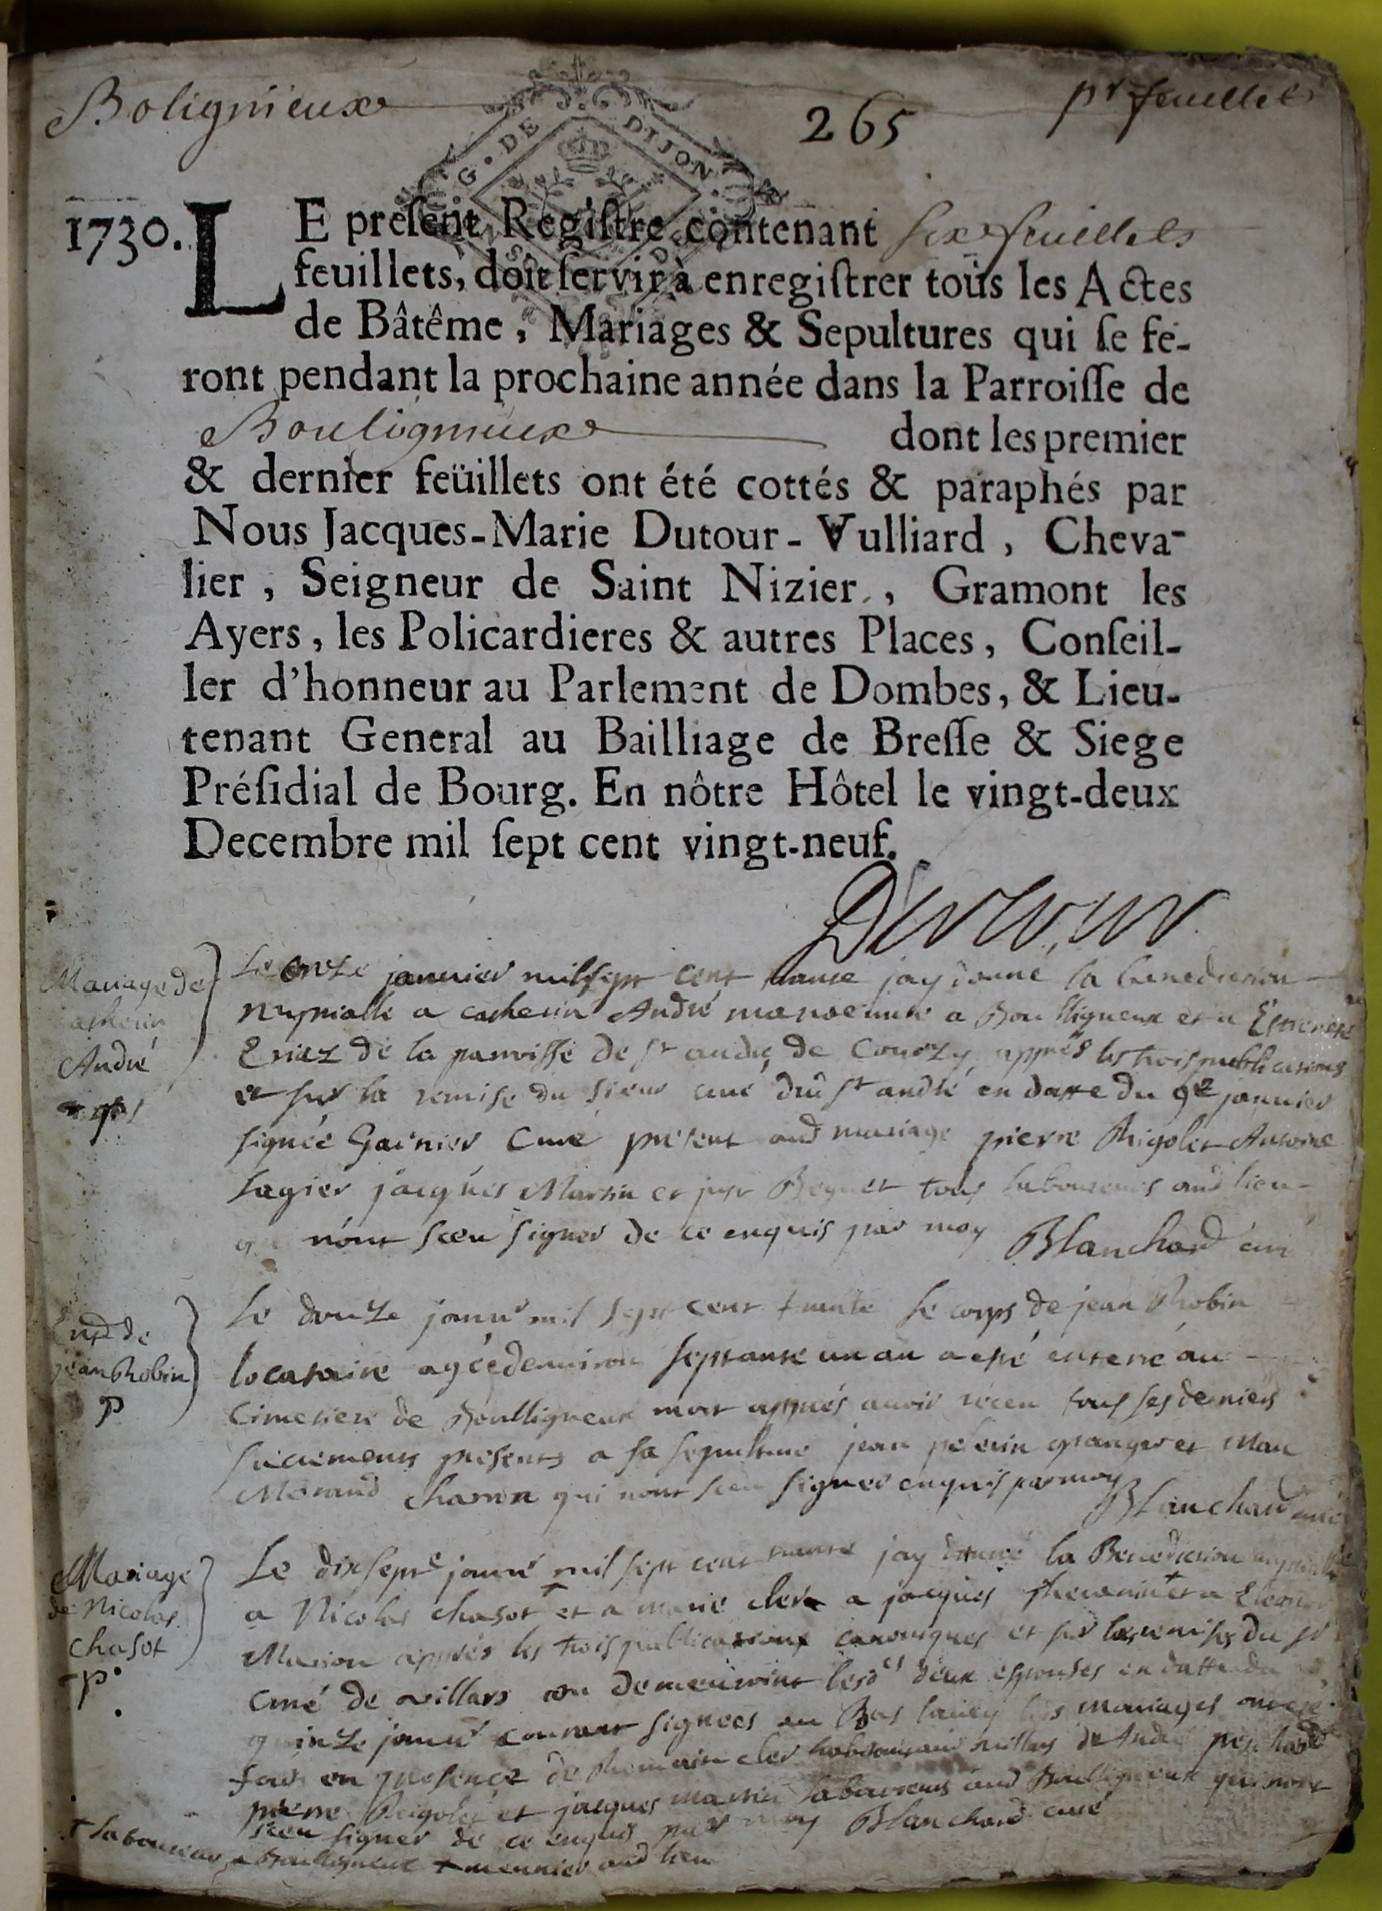 Bolignieux
265
pr feuillet
G. DE DIJON
1730.
LE preſent Regiſtre contenant six feuillets
feuillets, doit ſervir à enregiſtrer tous les Actes
de Bâtême, Mariages & Sepultures qui ſe fe-
ront pendant la prochaine année dans la Parroiſſe de
Bouligneux dont les premier
& dernier feüillets ont été cottés & paraphés par
Nous Jacques-Marie Dutour-Vulliard, Cheva-
lier, Seigneur de Saint Nizier, Gramont les
Ayers, les Policardieres & autres Places, Conſeil-
ler d'honneur au Parlement de Dombes, & Lieu-
tenant General au Bailliage de Breſſe & Siege
Préſidial de Bourg. En nôtre Hôtel le vingt-deux
Decembre mil ſept cent vingt-neuf.
Dutour
Mariage de
André
Le onze janvier mil sept cent trante jay donné la benediction
nuptialle a André a Boulligneux et a
de la parroisse de st andré de apprés les trois publications
et sur la remise du sieur curé dud st andré en datte du 9e janvier
signée Garnier Curé present aud mariage pierre Rigolet Antoine
Lagier jacques Martin et tous laboureurs aud lieu
n'ont sceu signer de ce enquis par moy Blanchard curé
jean Robin
p
Le douze janvr mil sept cent trante le corps de jean Robin
locataire agée denviron septante un an a esté enterré au
cimetiere de Boulligneux mort apprés avoir receu tous ses derniers
sacrements presents a sa sepulture jean granger et
charon qui nont sceu signer enquis par moy
Blanchard curé
Mariage
de Nicolas
Chasot
p
Le dix sept janvr mil sept cent trante jay donné la Benediction nuptialle
a Nicolas chasot + et a marie clerc a jacques + et a
apprés les trois publications canoniques et sur les remises du sr
curé de villars ou demeuroint lesd deux espouses en datte du
quinze janvr courant signées au Bas mariages
fais en presence de clerc villars de André
pierre Rigolet et jacques martin laboureurs aud Boulligneux qui nont
sceu signer de ce enquis par moy Blanchard curé
+ laboureur a Boulligneux + meunier aud lieu